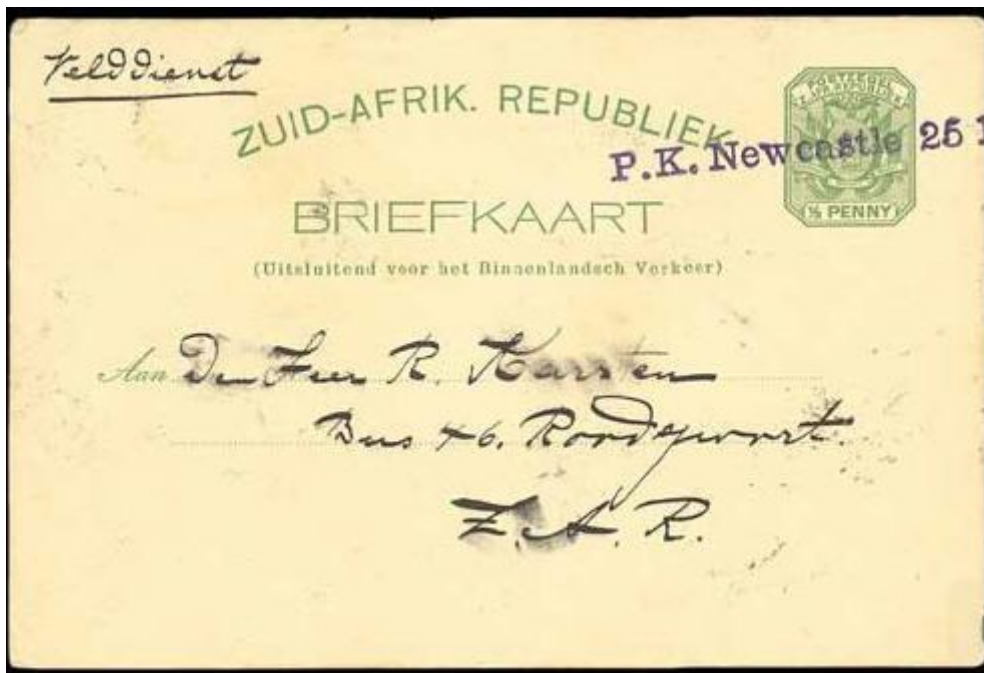 Velddienst
ZUID-AFRIK. REPUBLIEK
POSTZEGEL
P.K. Newcastle 25
½ PENNY
BRIEFKAART
(Uitsluitend voor het Binnenlandsch Verkeer)
Aan Den Heer R. Karsten
Bus 46. Roodepoort.
Z.A.R.